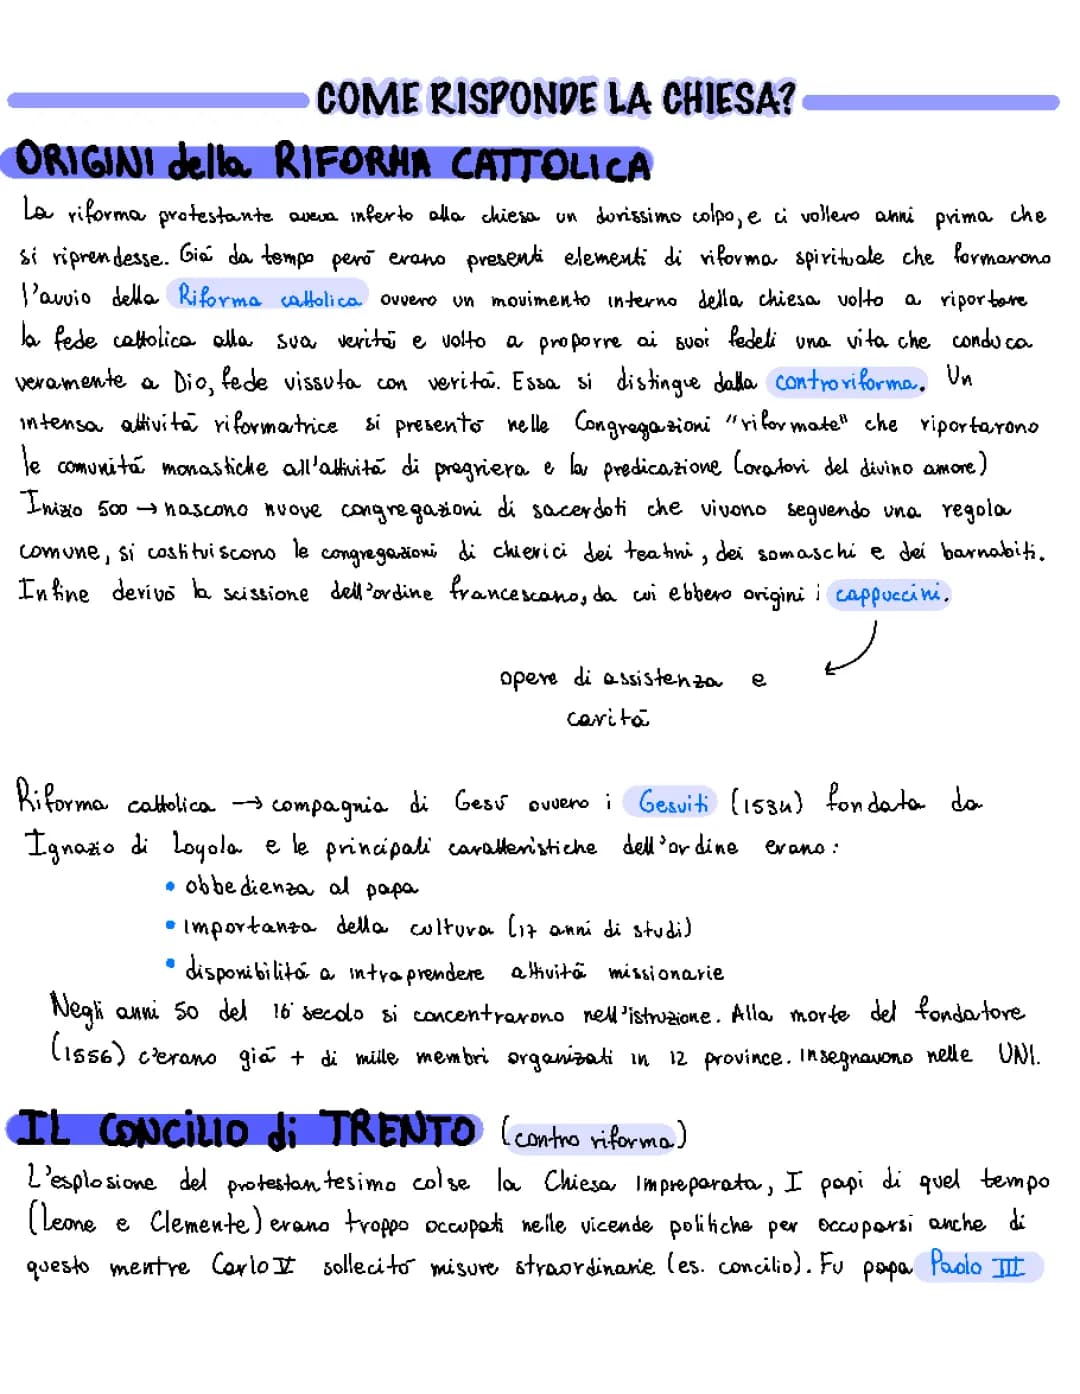 COME RISPONDE LA CHIESA?
ORIGINI della RIFORMA CATTOLICA
La riforma protestante aveva inferto alla chiesa un durissimo colpo, e ci vollero anni prima che
si riprendesse. Giá da tempo però erano presenti elementi di riforma spirituale che formarono
l'avvio della Riforma cattolica ovvero un movimento interno della chiesa volto a riportare
la fede cattolica alla sua verità e volto a proporre ai suoi fedeli una vita che conduca
veramente a Dio, fede vissuta con verità. Essa si distingue dalla controriforma. Un
intensa attività riformatrice si presentò nelle Congregazioni "riformate" che riportarono
le comunitá monastiche all'attivitá di pregriera e la predicazione (oratori del divino amore)
Inizio 500 → nascono nuove congregazioni di sacerdoti che vivono seguendo una regola
comune, si costituiscono le congregazioni di chierici dei teatini, dei somaschi e dei barnabiti.
Infine derivò la scissione dell'ordine francescano, da cui ebbero origini i cappuccini.
opere di assistenza e
carità
Riforma cattolica → compagnia di Gesù ovvero i Gesuiti (1534) fondata da
Ignazio di Loyola e le principali caratteristiche dell'ordine erano:
• obbedienza al papa
• importanza della cultura (17 anni di studi)
• disponibilitá a intraprendere attività missionarie
Negli anni 50 del 16 secolo si concentrarono nell'istruzione. Alla morte del fondatore
(1556) c'erano già + di mille membri organizzati in 12 province. Insegnavono nelle UNI.
IL CONCILIO di TRENTO (contro riforma)
L'esplosione del protestantesimo colse la Chiesa impreparata, I papi di quel tempo
(Leone e Clemente) erano troppo occupati nelle vicende politiche per occuparsi anche di
questo mentre Carlo V sollecitò misure straordinarie (es. concilio). Fu papa Paolo III